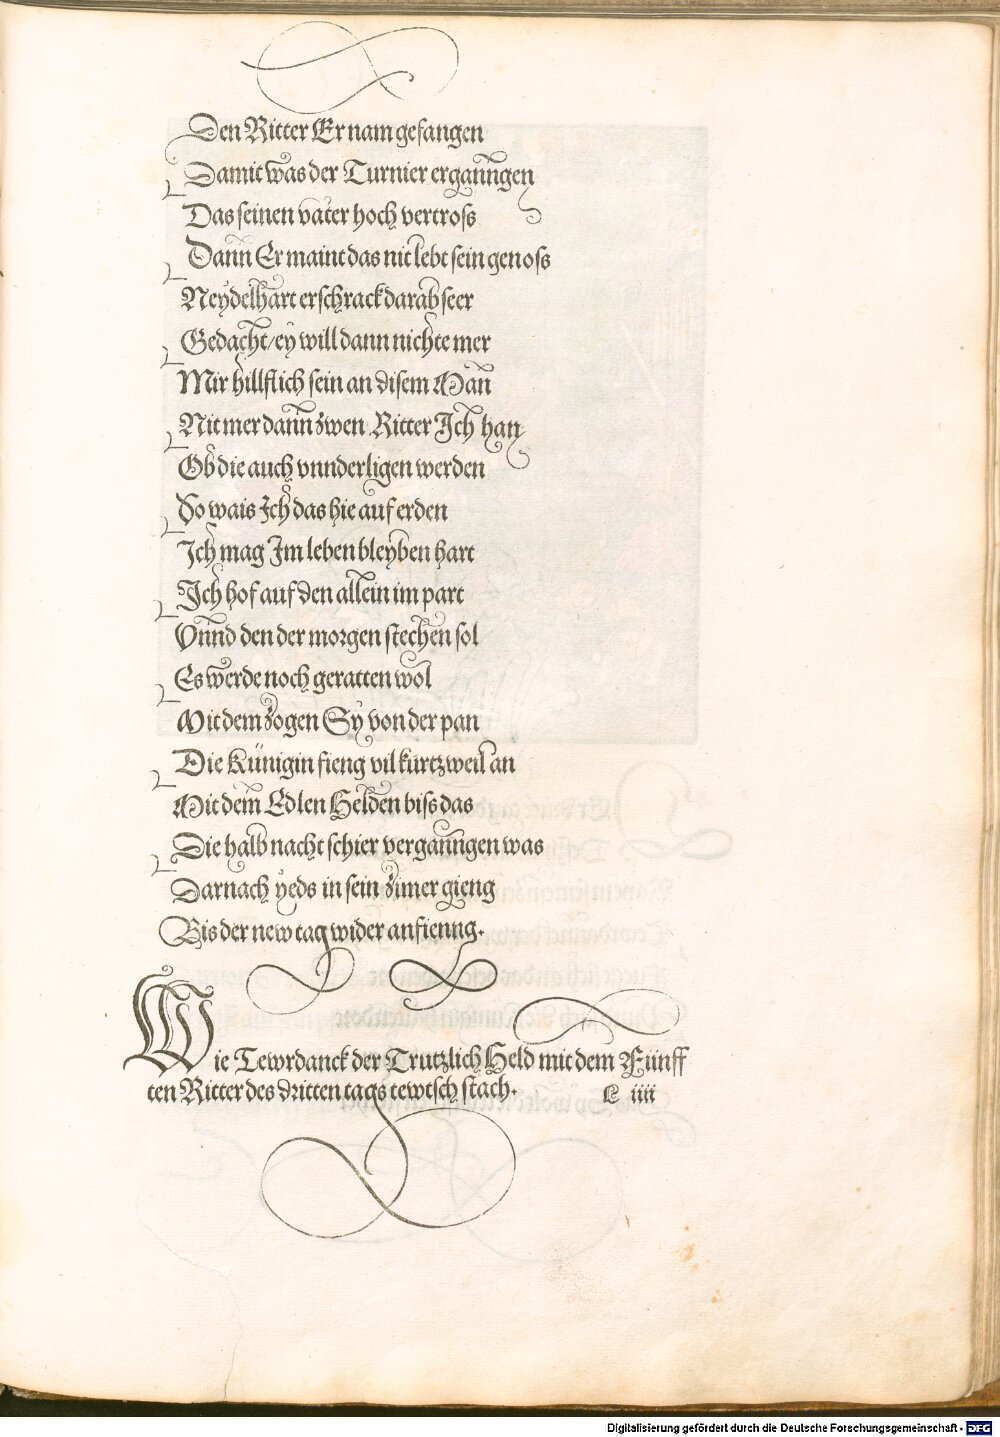 Den Ritter Er nam gefangen
Damit was der Turnier erganngen
Das seinen vater hoch vertross
Dann Er maint das nit lebt sein genoss
Neydelhart erschrack darab seer
Gedacht/ ey will dann nichte mer
Mir hillflich sein an disem Man
Nit mer dann zwen Ritter Ich han
Ob die auch vnnderligen werden
So wais Ich das hie auf erden
Ich mag Im leben bleyben hart
Ich hof auf den allein im part
Vnnd den der morgen stechen sol
Es werde noch geratten wol
Mit dem zogen Sy von der pan
Die Künigin fieng vil kurtzweil an
Mit dem Edlen Helden biss das
Die halb nacht schier verganngen was
Darnach yeds in sein zimer gieng
Bis der new tag wider anfienng.
Wie Tewrdanck der Trutzlich Held mit dem Fünff
ten Ritter des dritten tags tewtsch stach. C iiii
Digitalisierung gefördert durch die Deutsche Forschungsgemeinschaft - DFG